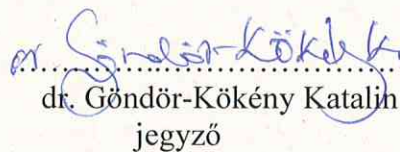 dr. Göndör-Kökény K
dr. Göndör-Kökény Katalin
jegyző